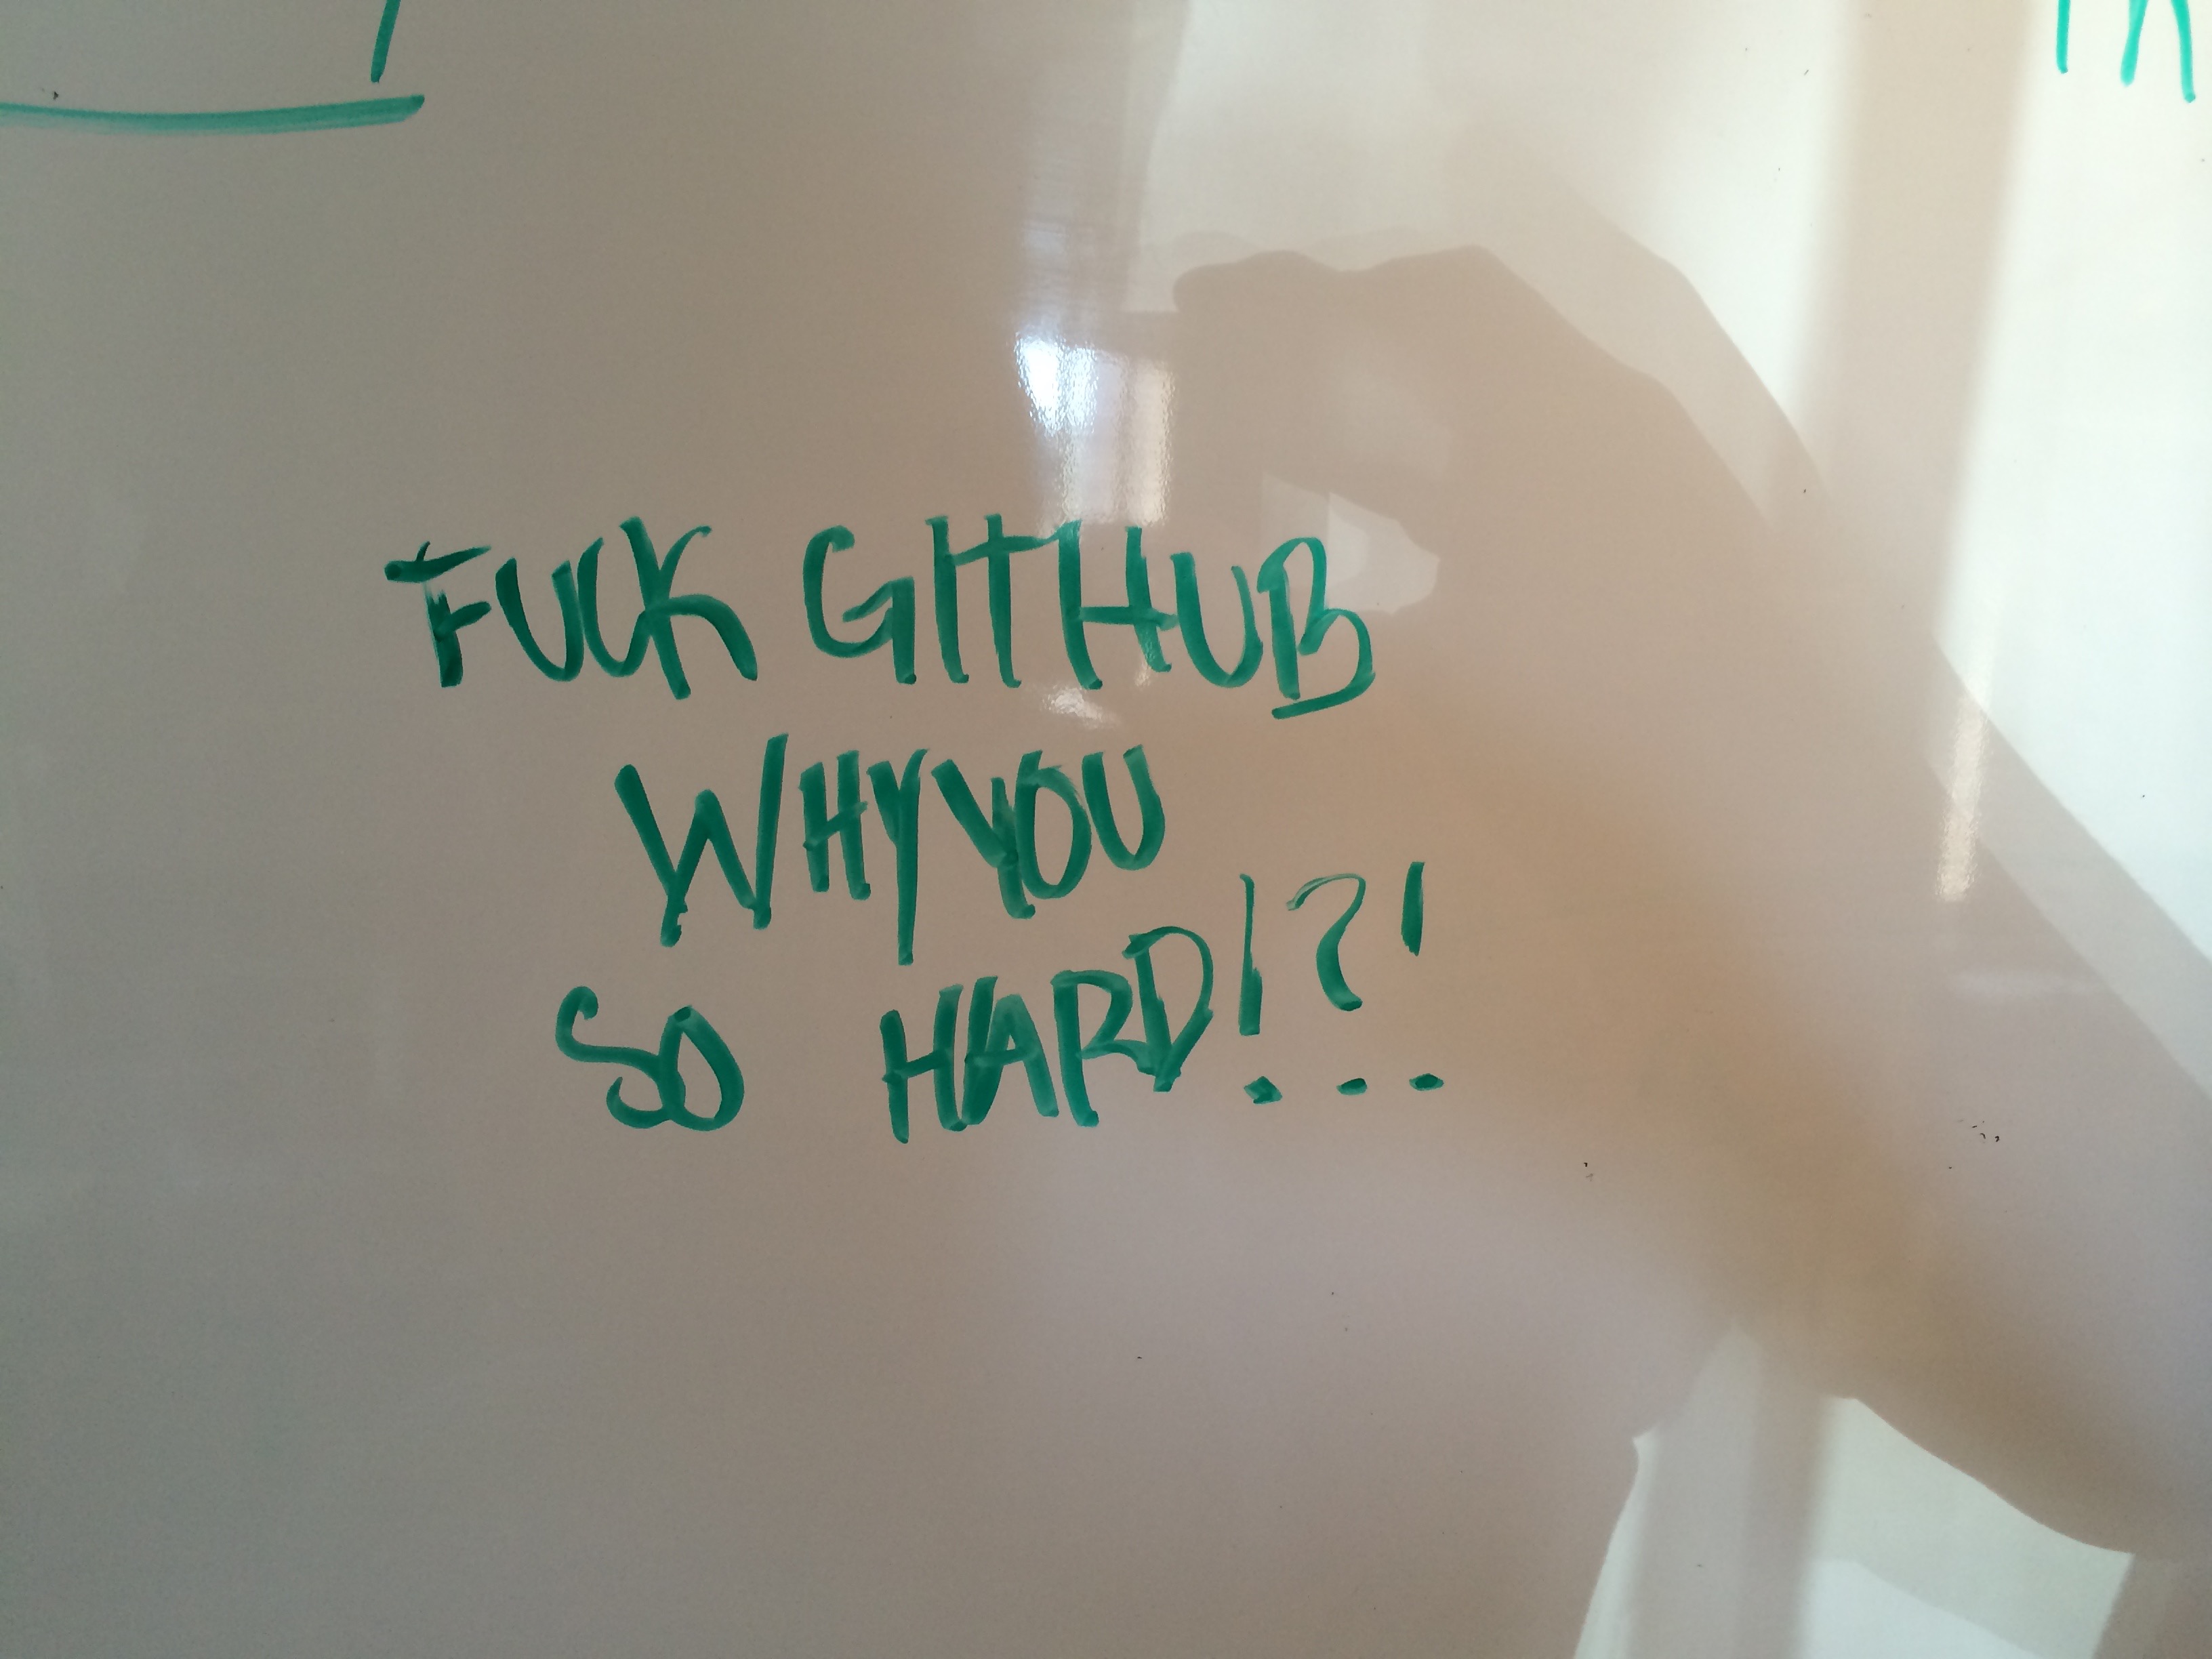 FUCK GITHUB
WHY YOU
SO HARD!?!